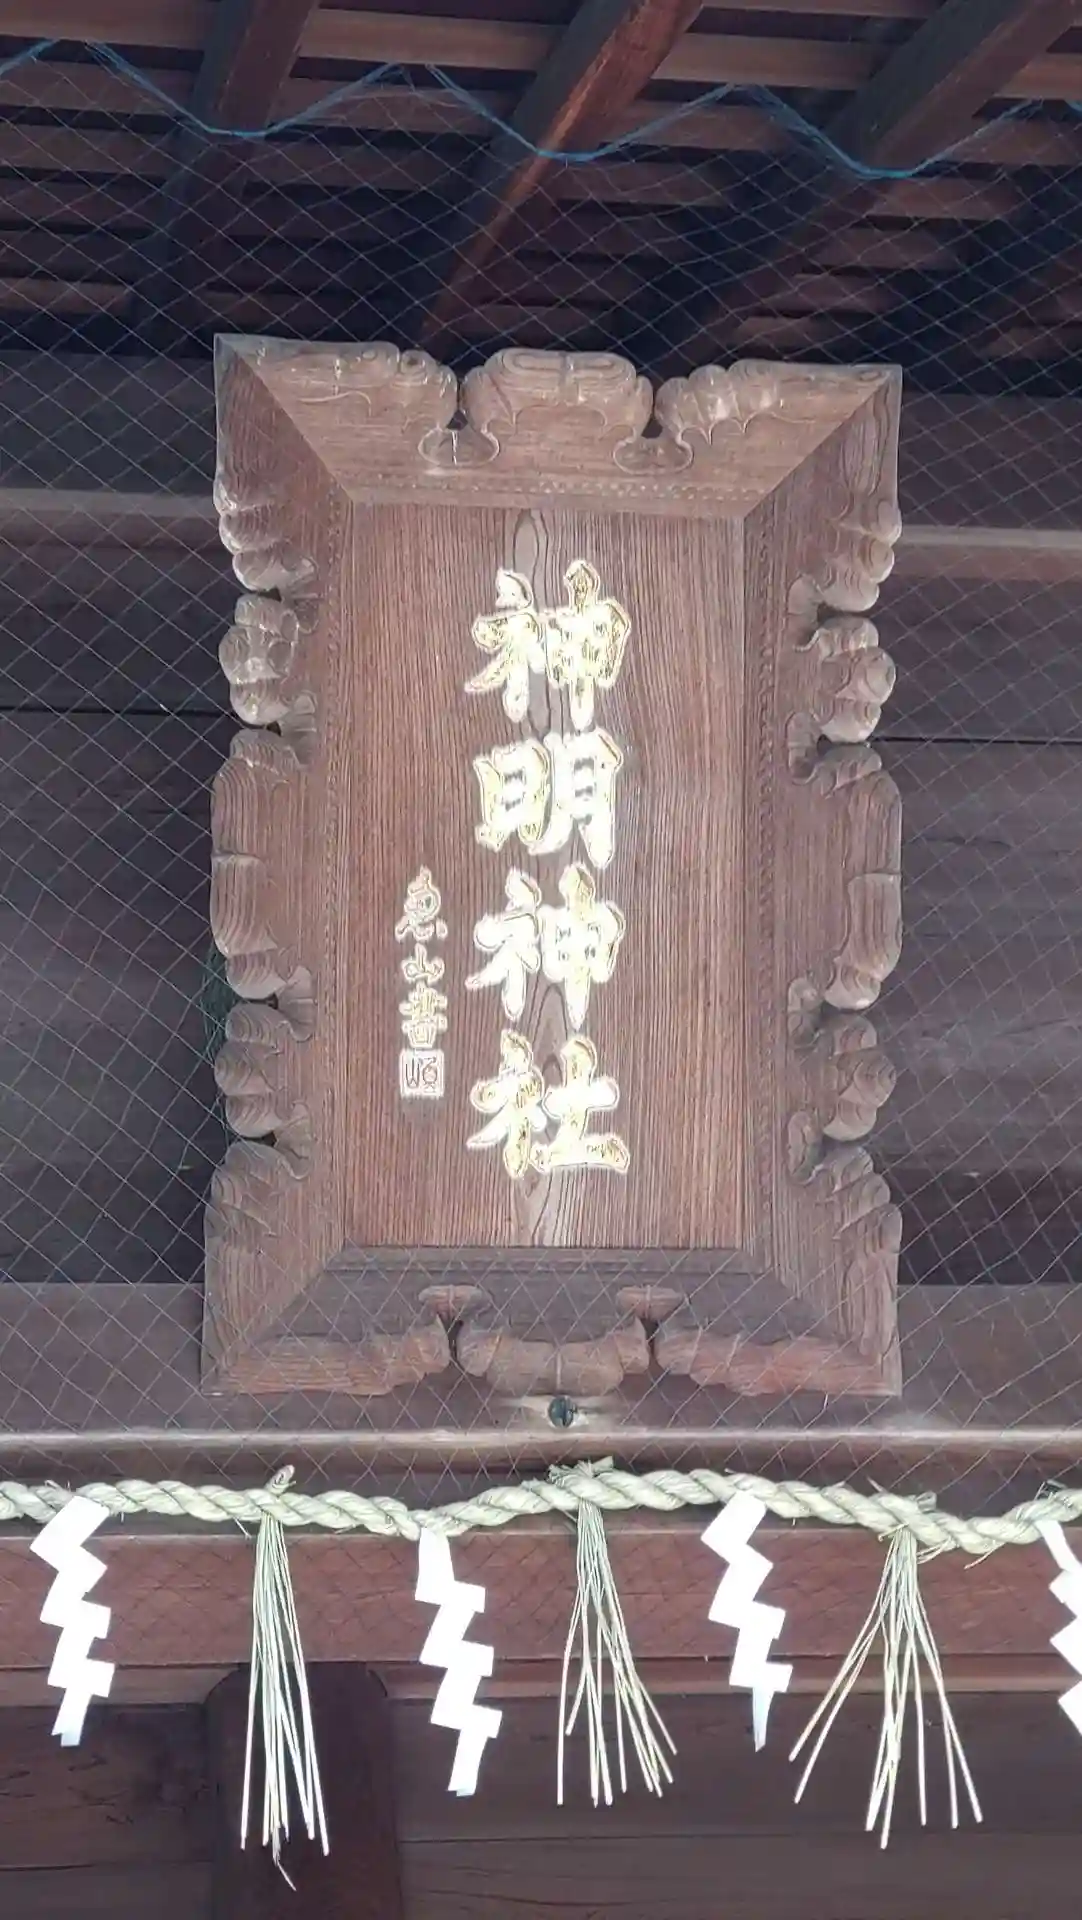 神明神社
恵山書